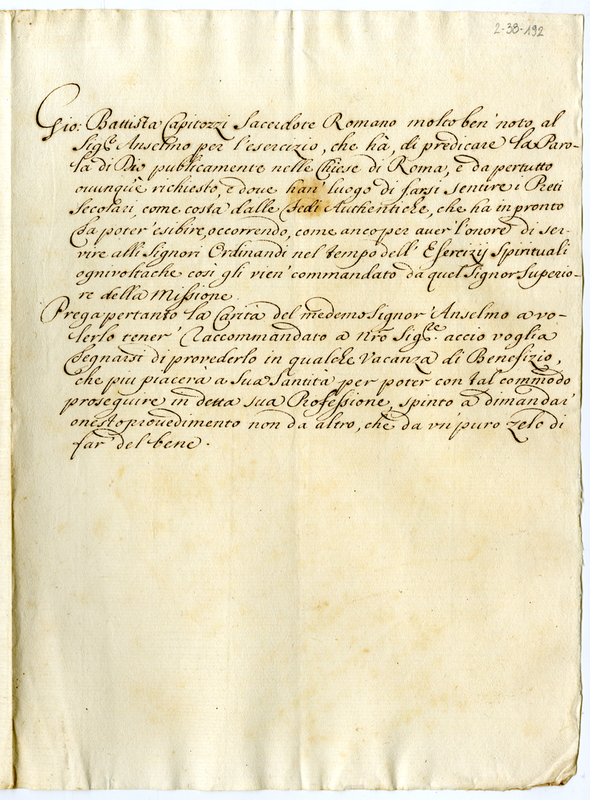 2-38-192
Gio: Battista Capitozzi Sacerdote Romano molto ben' noto, al
Sigre Anselmo per l'esercizio, che hà, di predicare la Paro-
la di Dio publicamente nelle Chiese di Roma, è da pertutto
ovunque richiesto, è dove han' luogo di farsi sentire i Preti
Secolari, come costa dalle Fedi Authentiche, che ha in pronto
da poter' esibire, occorrendo, come anco per aver l'onore di ser-
vire alli Signori Ordinandi nel tempo dell' Esercizij Spirituali
ognivoltache così gli vien' commandato da quel Signor Superio-
re della Missione.
Prega pertanto la Carità del medemo Signor' Anselmo a vo-
lerlo tener' Raccommandato a Nro Sigre. accio voglia
Degnarsi di provederlo in qualche Vacanza di Benefizio,
che piu piacerà a Sua Santità per poter con tal commodo
proseguire in detta sua Professione, spinto a dimandar'
onesto provedimento non da altro, che da un' puro zelo di
far' del bene.